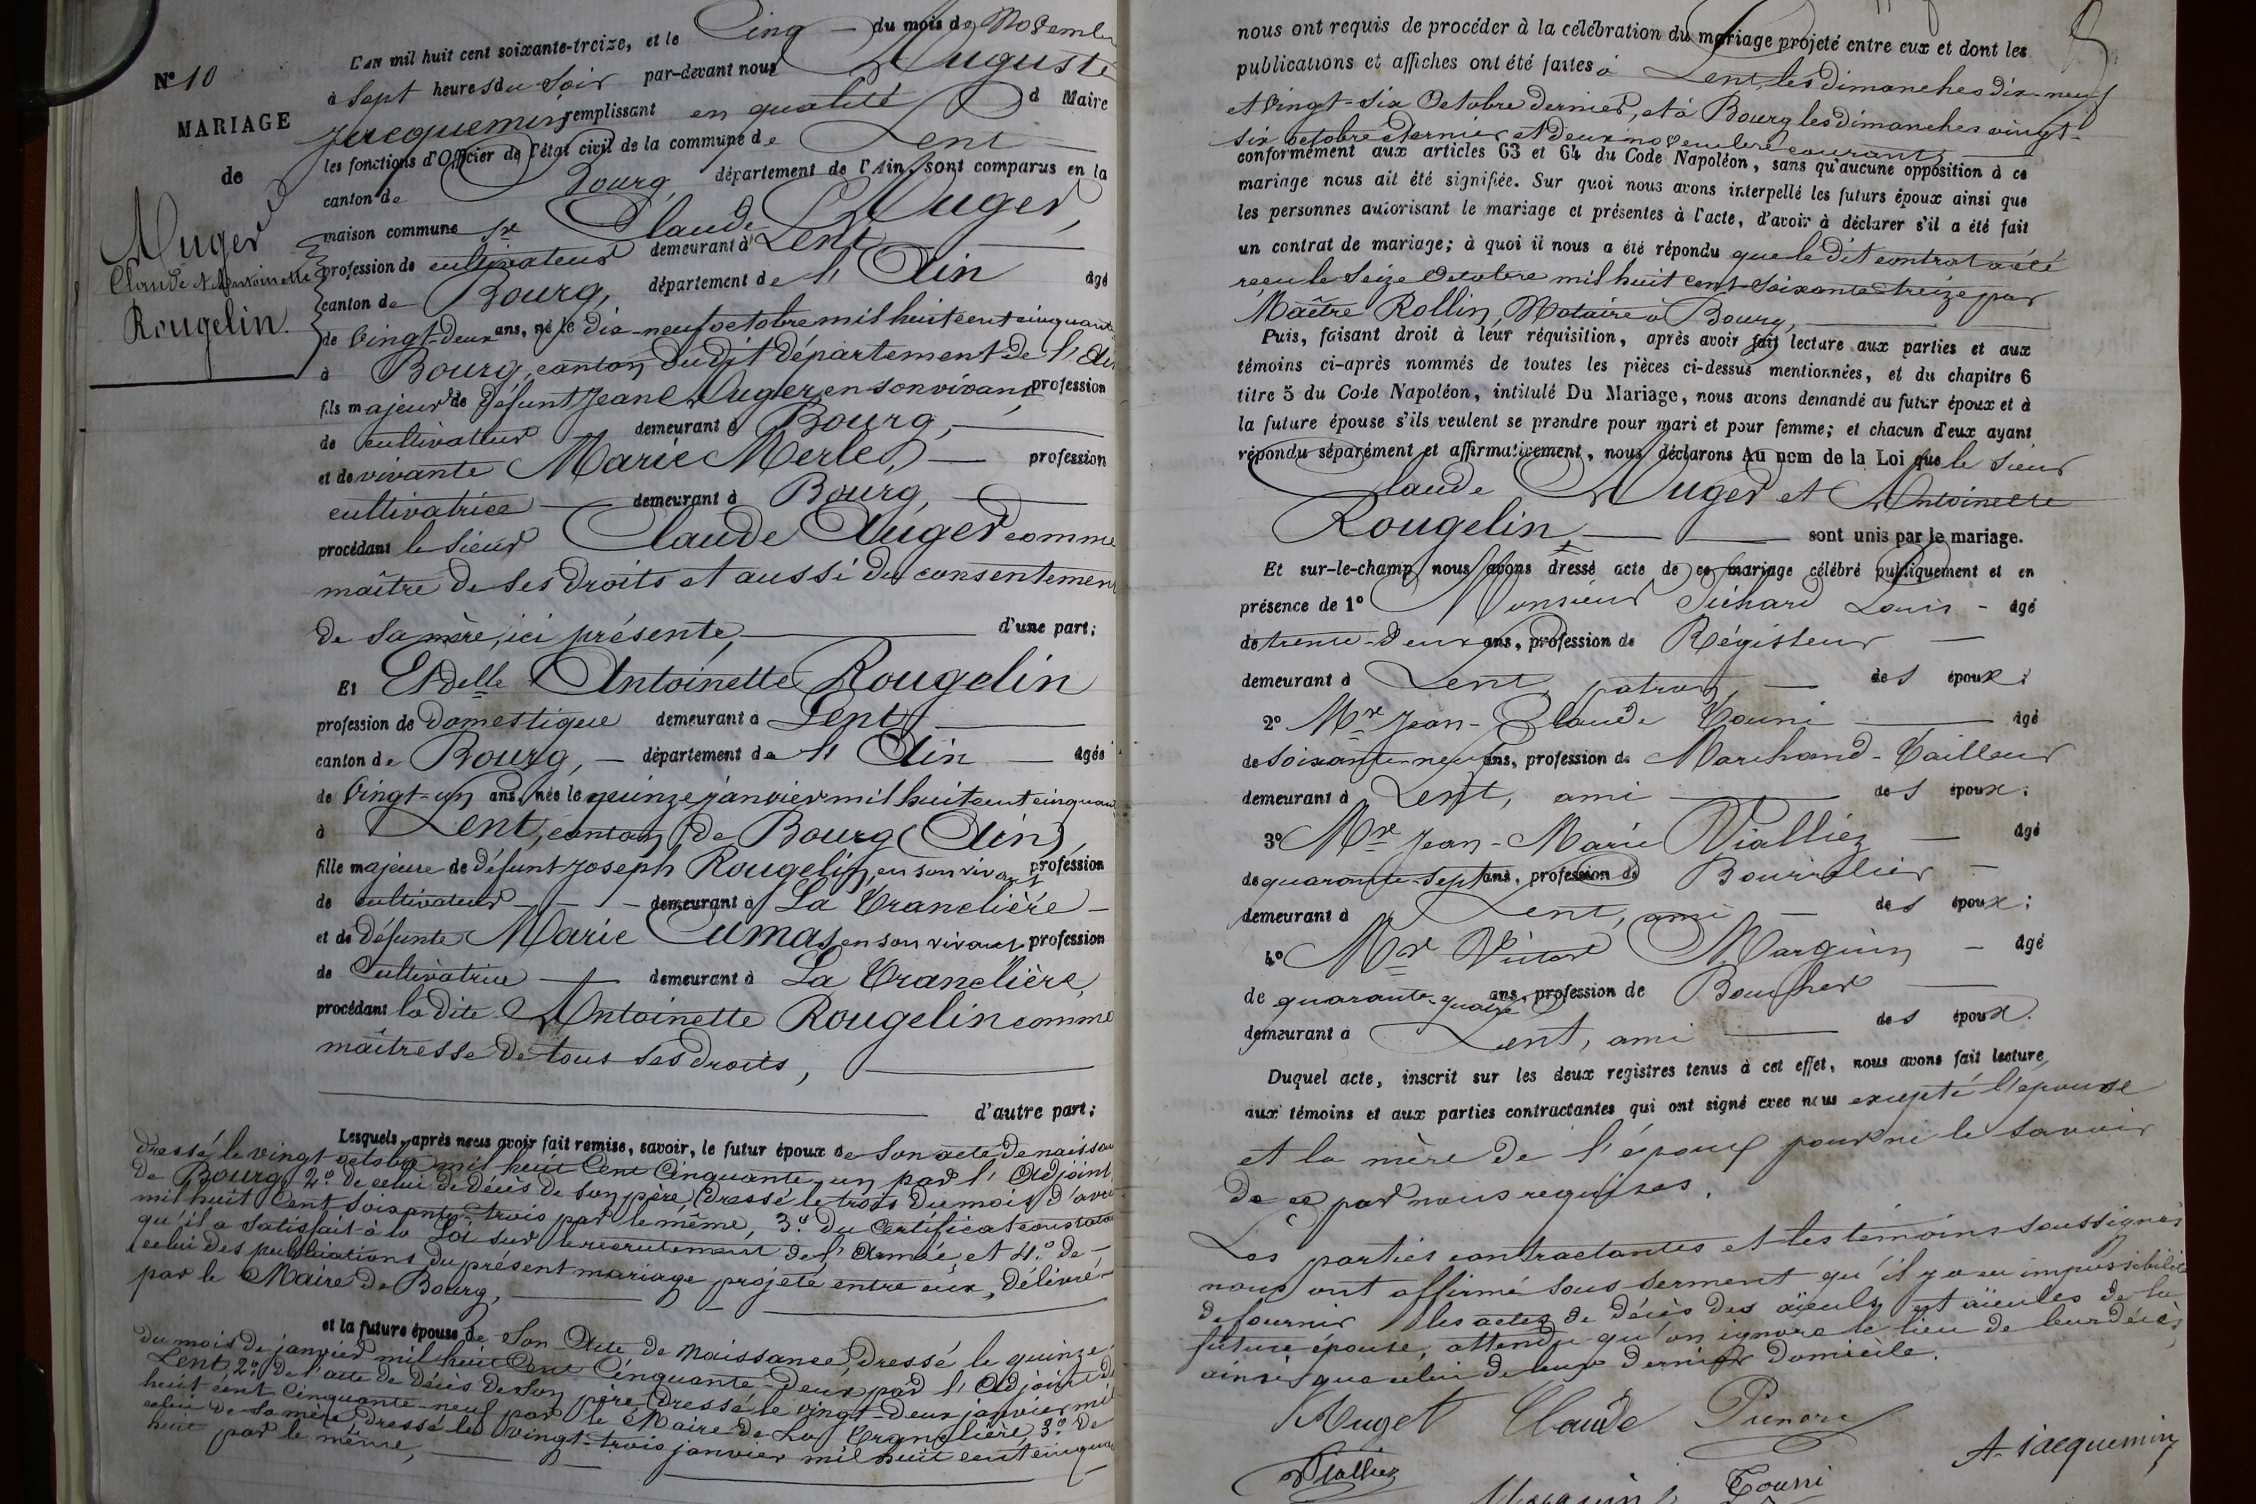 N° 10
MARIAGE
de
Auger
Claude et Antoinette
Rougelin.
L'an mil huit cent soixante-treize, et le Cinq du mois de Novembre
à Sept heures du Soir par-devant nous Auguste
Jacquemin, remplissant en qualité d Maire
les fonctions d'Officier de l'état civil de la commune de Lent
canton de Bourg, département de l'Ain, sont comparus en la
maison commune Sr Claude Auger,
profession de cultivateur demeurant à Lent
canton de Bourg, département de l'Ain âgé
de Vingt-deux ans, né le dix-neuf octobre mil huit cent cinquante
à Bourg, canton dudit département de l'Ain
fils majeur de défunt Jean Auger, en son vivant profession
de cultivateur demeurant à Bourg,
et de vivante Marie Merle, profession
cultivatrice demeurant à Bourg,
procédant le sieur Claude Auger comme
maître de ses droits et aussi du consentement
de sa mère, ici présente, d'une part;
Et Et delle Antoinette Rougelin
profession de domestique demeurant à Lent
canton de Bourg, département de l'Ain âgée
de Vingt-un ans, née le quinze janvier mil huit cent cinquante
à Lent, canton de Bourg (Ain),
fille majeure de défunt Joseph Rougelin, en son vivant profession
de cultivateur demeurant à La Tranclière
et de défunte Marie Cumas, en son vivant, profession
de Cultivatrice demeurant à La Tranclière,
procédant la dite Antoinette Rougelin comme
maîtresse de tous ses droits,
d'autre part;
Lesquels, après nous avoir fait remise, savoir, le futur époux de Son acte de naissance
dressé le vingt octobre mil huit Cent Cinquante un par l'Adjoint
de Bourg, 2° de celui de décès de son père, dressé le trois du mois d'avril
mil huit Cent soixante-trois par le même, 3° du Certificat constatant
qu'il a satisfait à la Loi sur le recrutement de l'Armée, et 4° de
celui des publications du présent mariage projeté entre eux, délivré
par le Maire de Bourg,
et la future épouse de Son Acte de Naissance, dressé le quinze
du mois de janvier mil huit Cent Cinquante-deux par l'Adjoint de
Lent, 2° de l'acte de décès de son père, dressé le vingt-deux janvier mil
huit cent Cinquante-neuf par le Maire de La Tranclière, 3° de
celui de sa mère, dressé le vingt-trois janvier mil huit cent cinquante
huit par le même,
nous ont requis de procéder à la célébration du mariage projeté entre eux et dont les
publications et affiches ont été faites à Lent, les dimanches dix-neuf
et vingt-six Octobre dernier, et à Bourg les dimanches vingt-
six octobre dernier et deux novembre courant,
conformément aux articles 63 et 64 du Code Napoléon, sans qu'aucune opposition à ce
mariage nous ait été signifiée. Sur quoi nous avons interpellé les futurs époux ainsi que
les personnes autorisant le mariage et présentes à l'acte, d'avoir à déclarer s'il a été fait
un contrat de mariage; à quoi il nous a été répondu que le dit contrat a été
reçu le Seize Octobre mil huit cent soixante-treize par
Maître Rollin, Notaire à Bourg,
Puis, faisant droit à leur réquisition, après avoir fait lecture aux parties et aux
témoins ci-après nommés de toutes les pièces ci-dessus mentionnées, et du chapitre 6
titre 5 du Code Napoléon, intitulé Du Mariage, nous avons demandé au futur époux et à
la future épouse s'ils veulent se prendre pour mari et pour femme; et chacun d'eux ayant
répondu séparément et affirmativement, nous déclarons Au nom de la Loi que le Sieur
Claude Auger et Antoinette
Rougelin sont unis par le mariage.
Et sur-le-champ nous avons dressé acte de ce mariage célébré publiquement et en
présence de 1° Monsieur Louis âgé
de trente-deux ans, profession de Régisseur
demeurant à Lent, patron, des époux;
2° Mr Jean-Claude Tourni âgé
de Soixante-neuf ans, profession de Marchand-Tailleur
demeurant à Lent, ami des époux;
3° Mr Jean-Marie Vialliez âgé
de quarante-sept ans, profession de Bourrelier
demeurant à Lent, ami des époux;
4° Mr Victor Marguin âgé
de quarante-quatre ans profession de Boucher
demeurant à Lent, ami des époux.
Duquel acte, inscrit sur les deux registres tenus à cet effet, nous avons fait lecture
aux témoins et aux parties contractantes qui ont signé avec nous excepté l'épouse
et la mère de l'époux pour ne le savoir
de ce par nous requises.
Les parties contractantes et les témoins soussignés
nous ont affirmé sous serment qu'il y a eu impossibilité
de fournir les actes de décès des aïeuls et aïeules de la
future épouse, attendu qu'on ignore le lieu de leur décès
ainsi que celui de leur dernier domicile.
Auget Claude
A. Jacquemin
Vialliez
Marguin Tourni